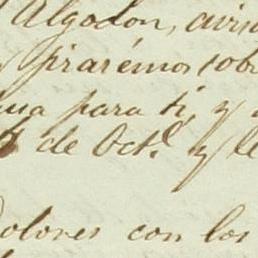 Algodon, avis
y pirarémos sobr
para ti, y
de Oct.e y le
Dolores con los